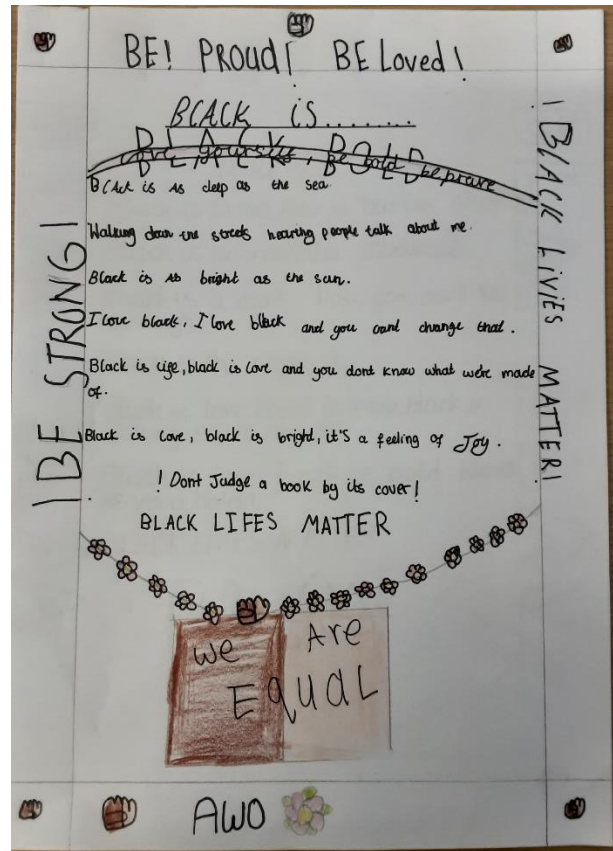 BE! PROUD! BE Loved!
BLACK is........
BLACK BOLD
Love yourself, be bold be brave
Black is as deep as the sea.
Walking down the streets hearing people talk about me.
Black is as bright as the sun.
I love black, I love black and you cant change that.
Black is life, black is love and you dont know what we're made
of.
Black is love, black is bright, it's a feeling of Joy.
! Dont Judge a book by its cover!
BLACK LIFES MATTER
! BE STRONG !
! BLACK LIVIES MATTER!
We Are
EQUAL
AWO